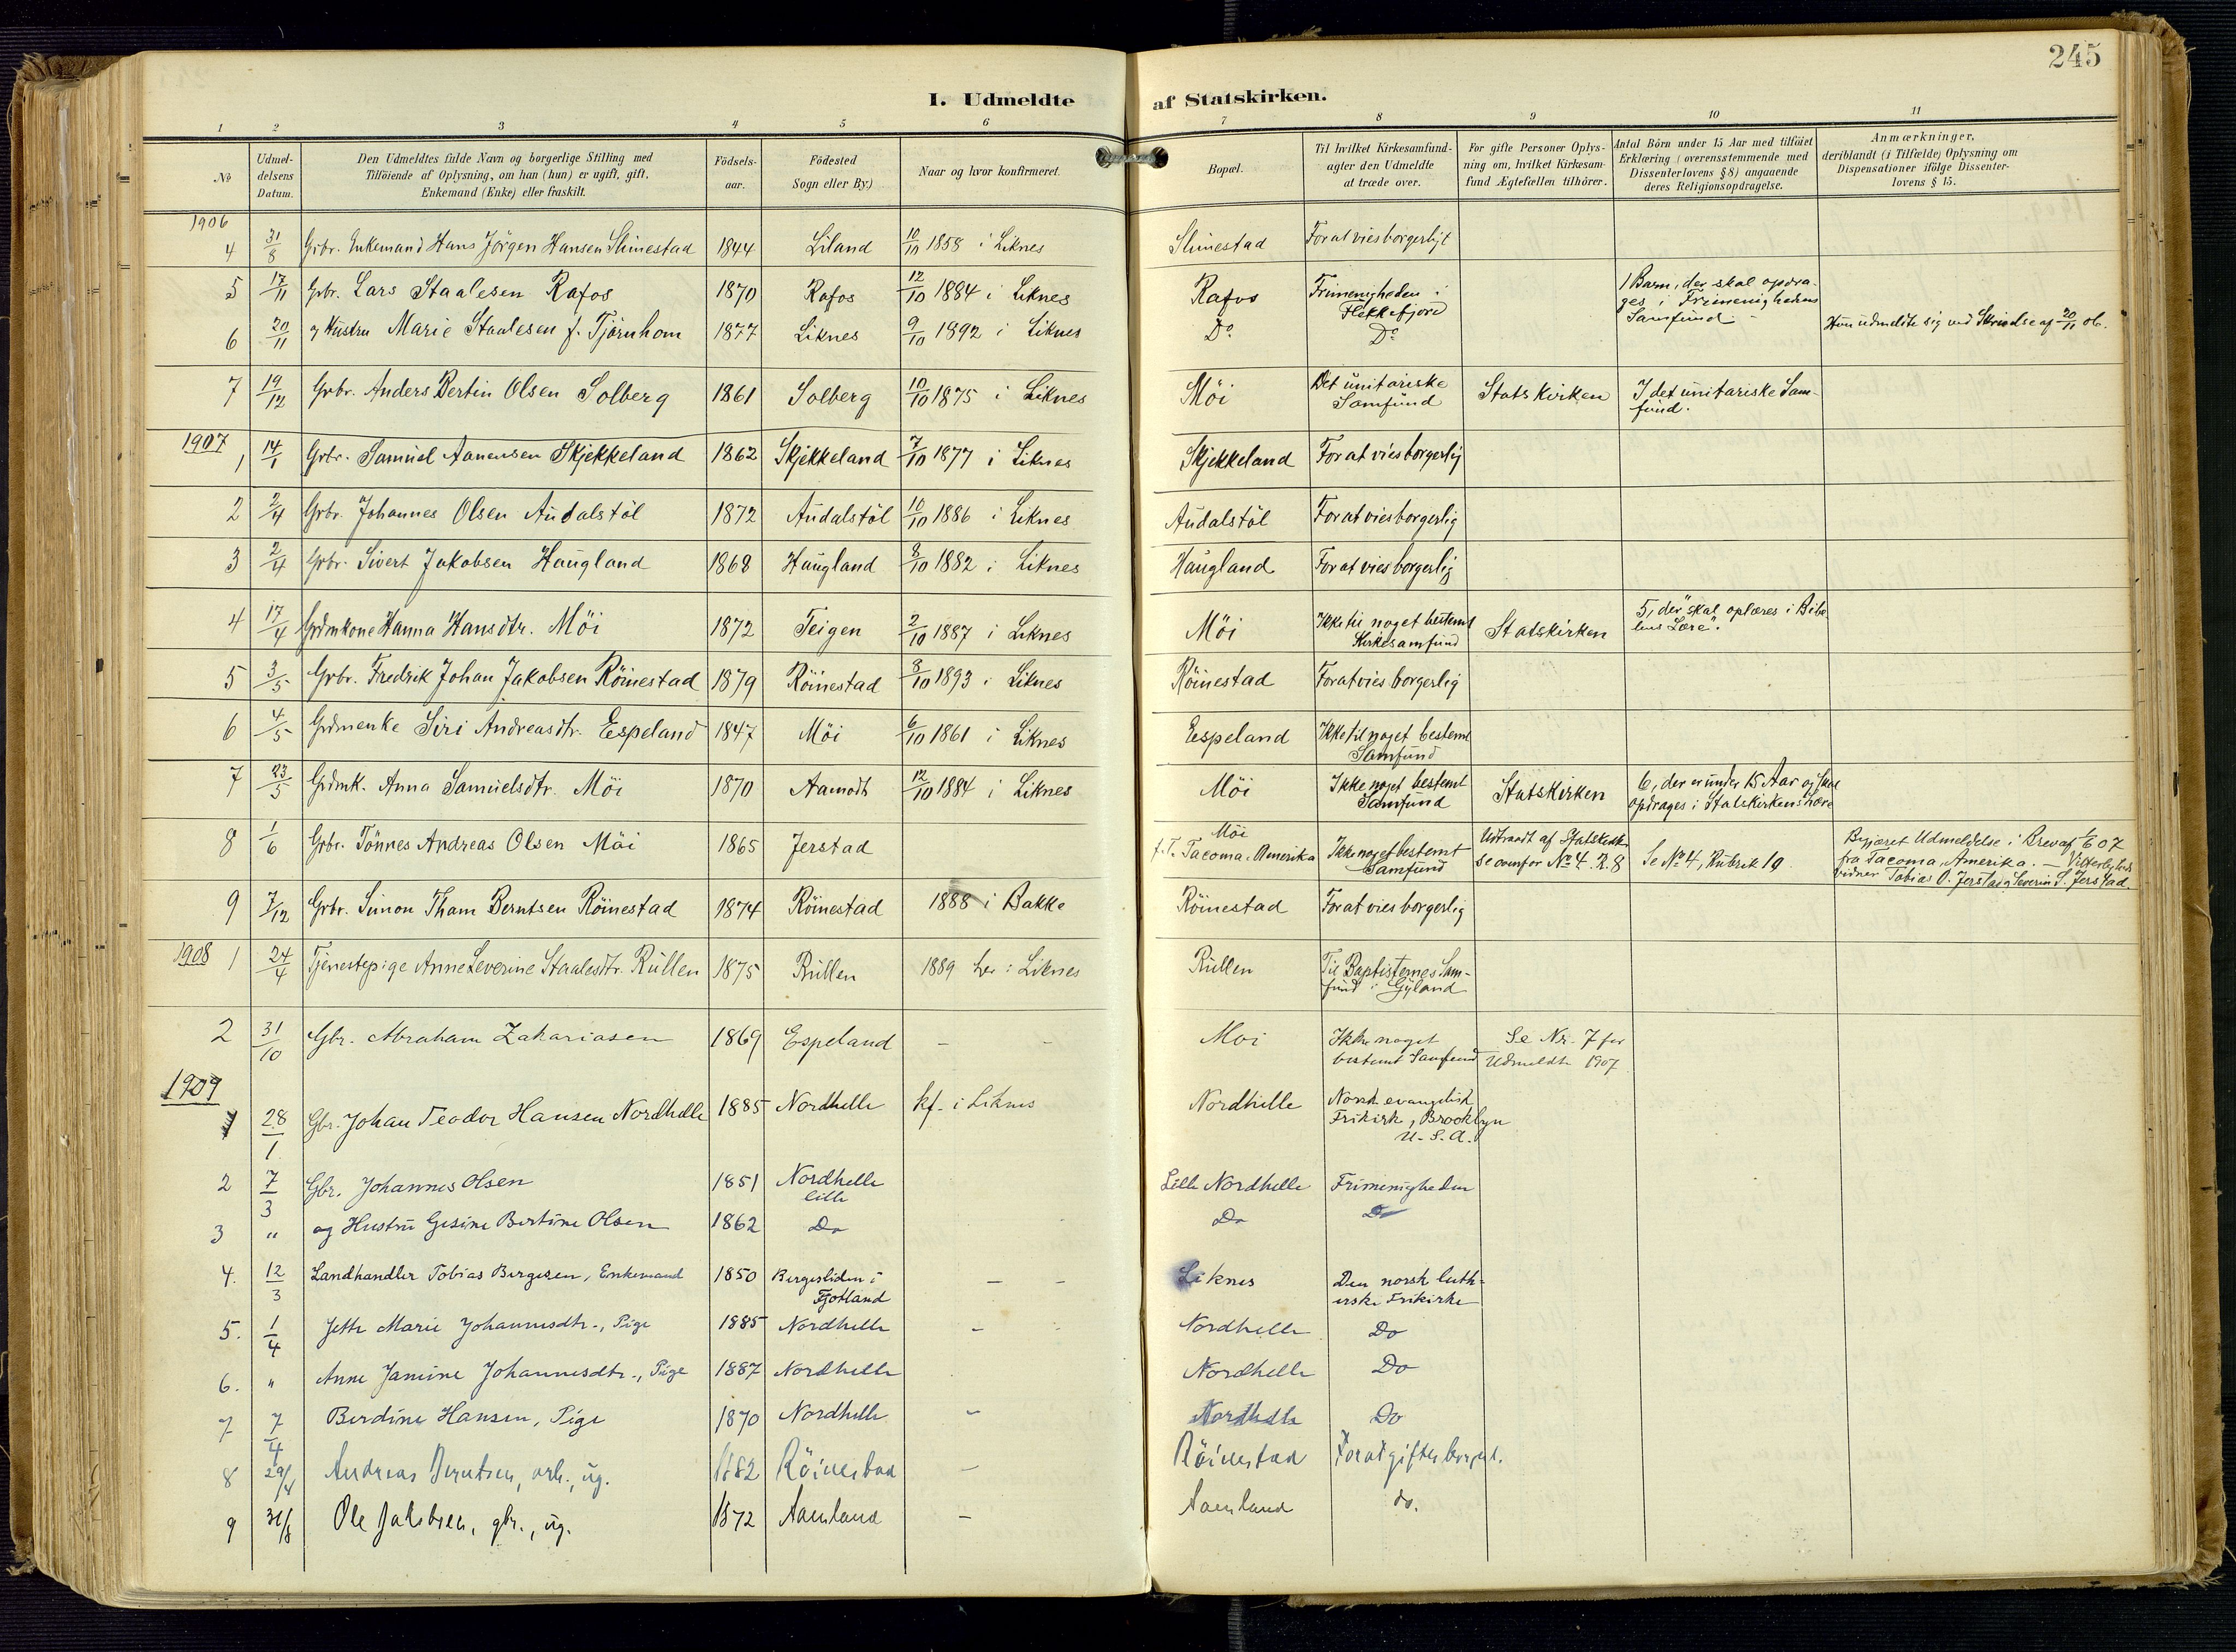 245
I. Udmeldte af Statskirken.
1 2 3 4 5 6 7 8 9 10 11
No
Udmel-
delsens
Datum.
Den Udmeldtes fulde Navn og borgerlige Stilling med
Tilföiende af Oplysning, om han (hun) er ugift, gift,
Enkemand (Enke) eller fraskilt.
Födsels-
aar.
Födested
Sogn eller By.)
Naar og hvor konfirmeret.
Bopæl.
Til hvilket Kirkesamfund-
agter den Udmeldte
at træde over.
For gifte Personer Oplys-
ning om, hvilket Kirkesam-
fund Ægtefællen tilhörer.
Antal Börn under 15 Aar med tilföiet
Erklæring (overensstemmende med
Dissenterlovens § 8) angaaende
deres Religionsopdragelse.
Anmærkninger,
deriblandt (i Tilfælde) Oplysning om
Dispensationer ifölge Dissenter-
lovens § 15.
1906
4 31/8 Grbr. Enkemand Hans Jörgen Hansen Slimestad 1844 Liland 10/10 1858 i Liknes Slimestad For at vies borgerligt
5 17/11 Grbr. Lars Staalesen Rafos 1870 Rafos 12/10 1884 i Liknes Rafos Frimenigheden i
Flekkefjord
1 Barn, der skal opdra-
ges i Frimenighedens
Samfund.
6 20/11 og Hustru Marie Staalesen f. Tjörnhom 1877 Liknes 9/10 1892 i Liknes Do Do Hun udmeldte sig ved Skrivelse af 20/11 06.
7 19/12 Grbr. Anders Bertin Olsen Solberg 1861 Solberg 10/10 1875 i Liknes Möi Det unitariske
Samfund
Statskirken I det unitariske Sam-
fund.
1907
1 14/1 Grbr. Samuel Aanensen Skjekkeland 1862 Skjekkeland 7/10 1877 i Liknes Skjekkeland For at vies borgerlig
2 2/4 Grbr. Johannes Olsen Audalstöl 1872 Audalstöl 10/10 1886 i Liknes Audalstöl For at vies borgerlig
3 2/4 Grbr. Sivert Jakobsen Haugland 1868 Haugland 8/10 1882 i Liknes Haugland For at vies borgerlig
4 17/4 Grdmkone Hanna Hansdtr. Möi 1872 Teigen 2/10 1887 i Liknes Möi Ikke til noget bestemt
Kirkesamfund
Statskirken 5, der "skal oplæres i Bibe-
lens Lære".
5 3/5 Grbr. Fredrik Johan Jakobsen Röinestad 1879 Röinestad 8/10 1893 i Liknes Röinestad For at vies borgerlig
6 4/5 Grdmenke Siri Andreasdtr. Espeland 1847 Möi 6/10 1861 i Liknes Espeland Ikke til noget bestemt
Samfund
7 23/5 Grdmk. Anna Samuelsdtr. Möi 1870 Aamodt 12/10 1884 i Liknes Möi Ikke noget bestemt
Samfund
Statskirken 6, der er under 15 Aar og skal
opdrages i Statskirkens Lære
8 1/6 Grbr. Tönnes Andreas Olsen Möi 1865 Jerstad Möi
f. T. Tacoma, Amerika Ikke noget bestemt
Samfund
Udtraadt af Statskirken
se ovenfor No 4. R. 8
Se No 4, Rubrik 10
Begjæret Udmeldelse i Brev af 1/6 07
fra Tacoma, Amerika. — Vitterligheds
vidner Tobias O. Jerstad og Severin S. Jerstad.
9 7/12 Grbr. Simon Tham Berntsen Röinestad 1874 Röinestad 1888 i Bakke Röinestad For at vies borgerlig
1908
1 24/4 Tjenestepige Anne Severine Staalesdtr. Rullen 1875 Rullen 1889 her i Liknes Rullen Til Baptisternes Sam-
fund i Gyland
2 31/10 Gbr. Abraham Zakariasen 1869 Espeland - - Moi Ikke noget
bestemt Samfund
Se Nr. 7 for
Udmeldte 1907
1909
1 28/1 Gbr. Johan Teodor Hansen Nordhelle 1885 Nordhelle kf. i Liknes Nordhelle Norsk evangelisk
Frikirk, Brooklyn
U. S. A.
2 7/3 Gbr. Johannes Olsen 1851 Nordhelle
lille
Lille Nordhelle Frimenigheden
3 " og Hustru Gesine Bertine Olsen 1862 Do Do Do
4. 12/3 Landhandler Tobias Birgesen, Enkemand 1850 Birgesliden i
Fjotland
- - Liknes Den norsk luth-
erske Frikirke
5. 1/4 Jette Marie Johannesdtr., Pige 1885 Nordhelle - Nordhelle Do
6. " Anne Jamine Johannesdtr., Pige 1887 Nordhelle Nordhelle Do
7 7/4 Berdine Hansen, Pige 1870 Nordhelle - Nordhelle Do
8 29/4 Andreas Berntsen, arb., ug. 1882 Röinestad - Röinestad For at giftes borgerl.
9 31/8 Ole Jakobsen, gbr., ug. 1872 Aamland - Aamland do.